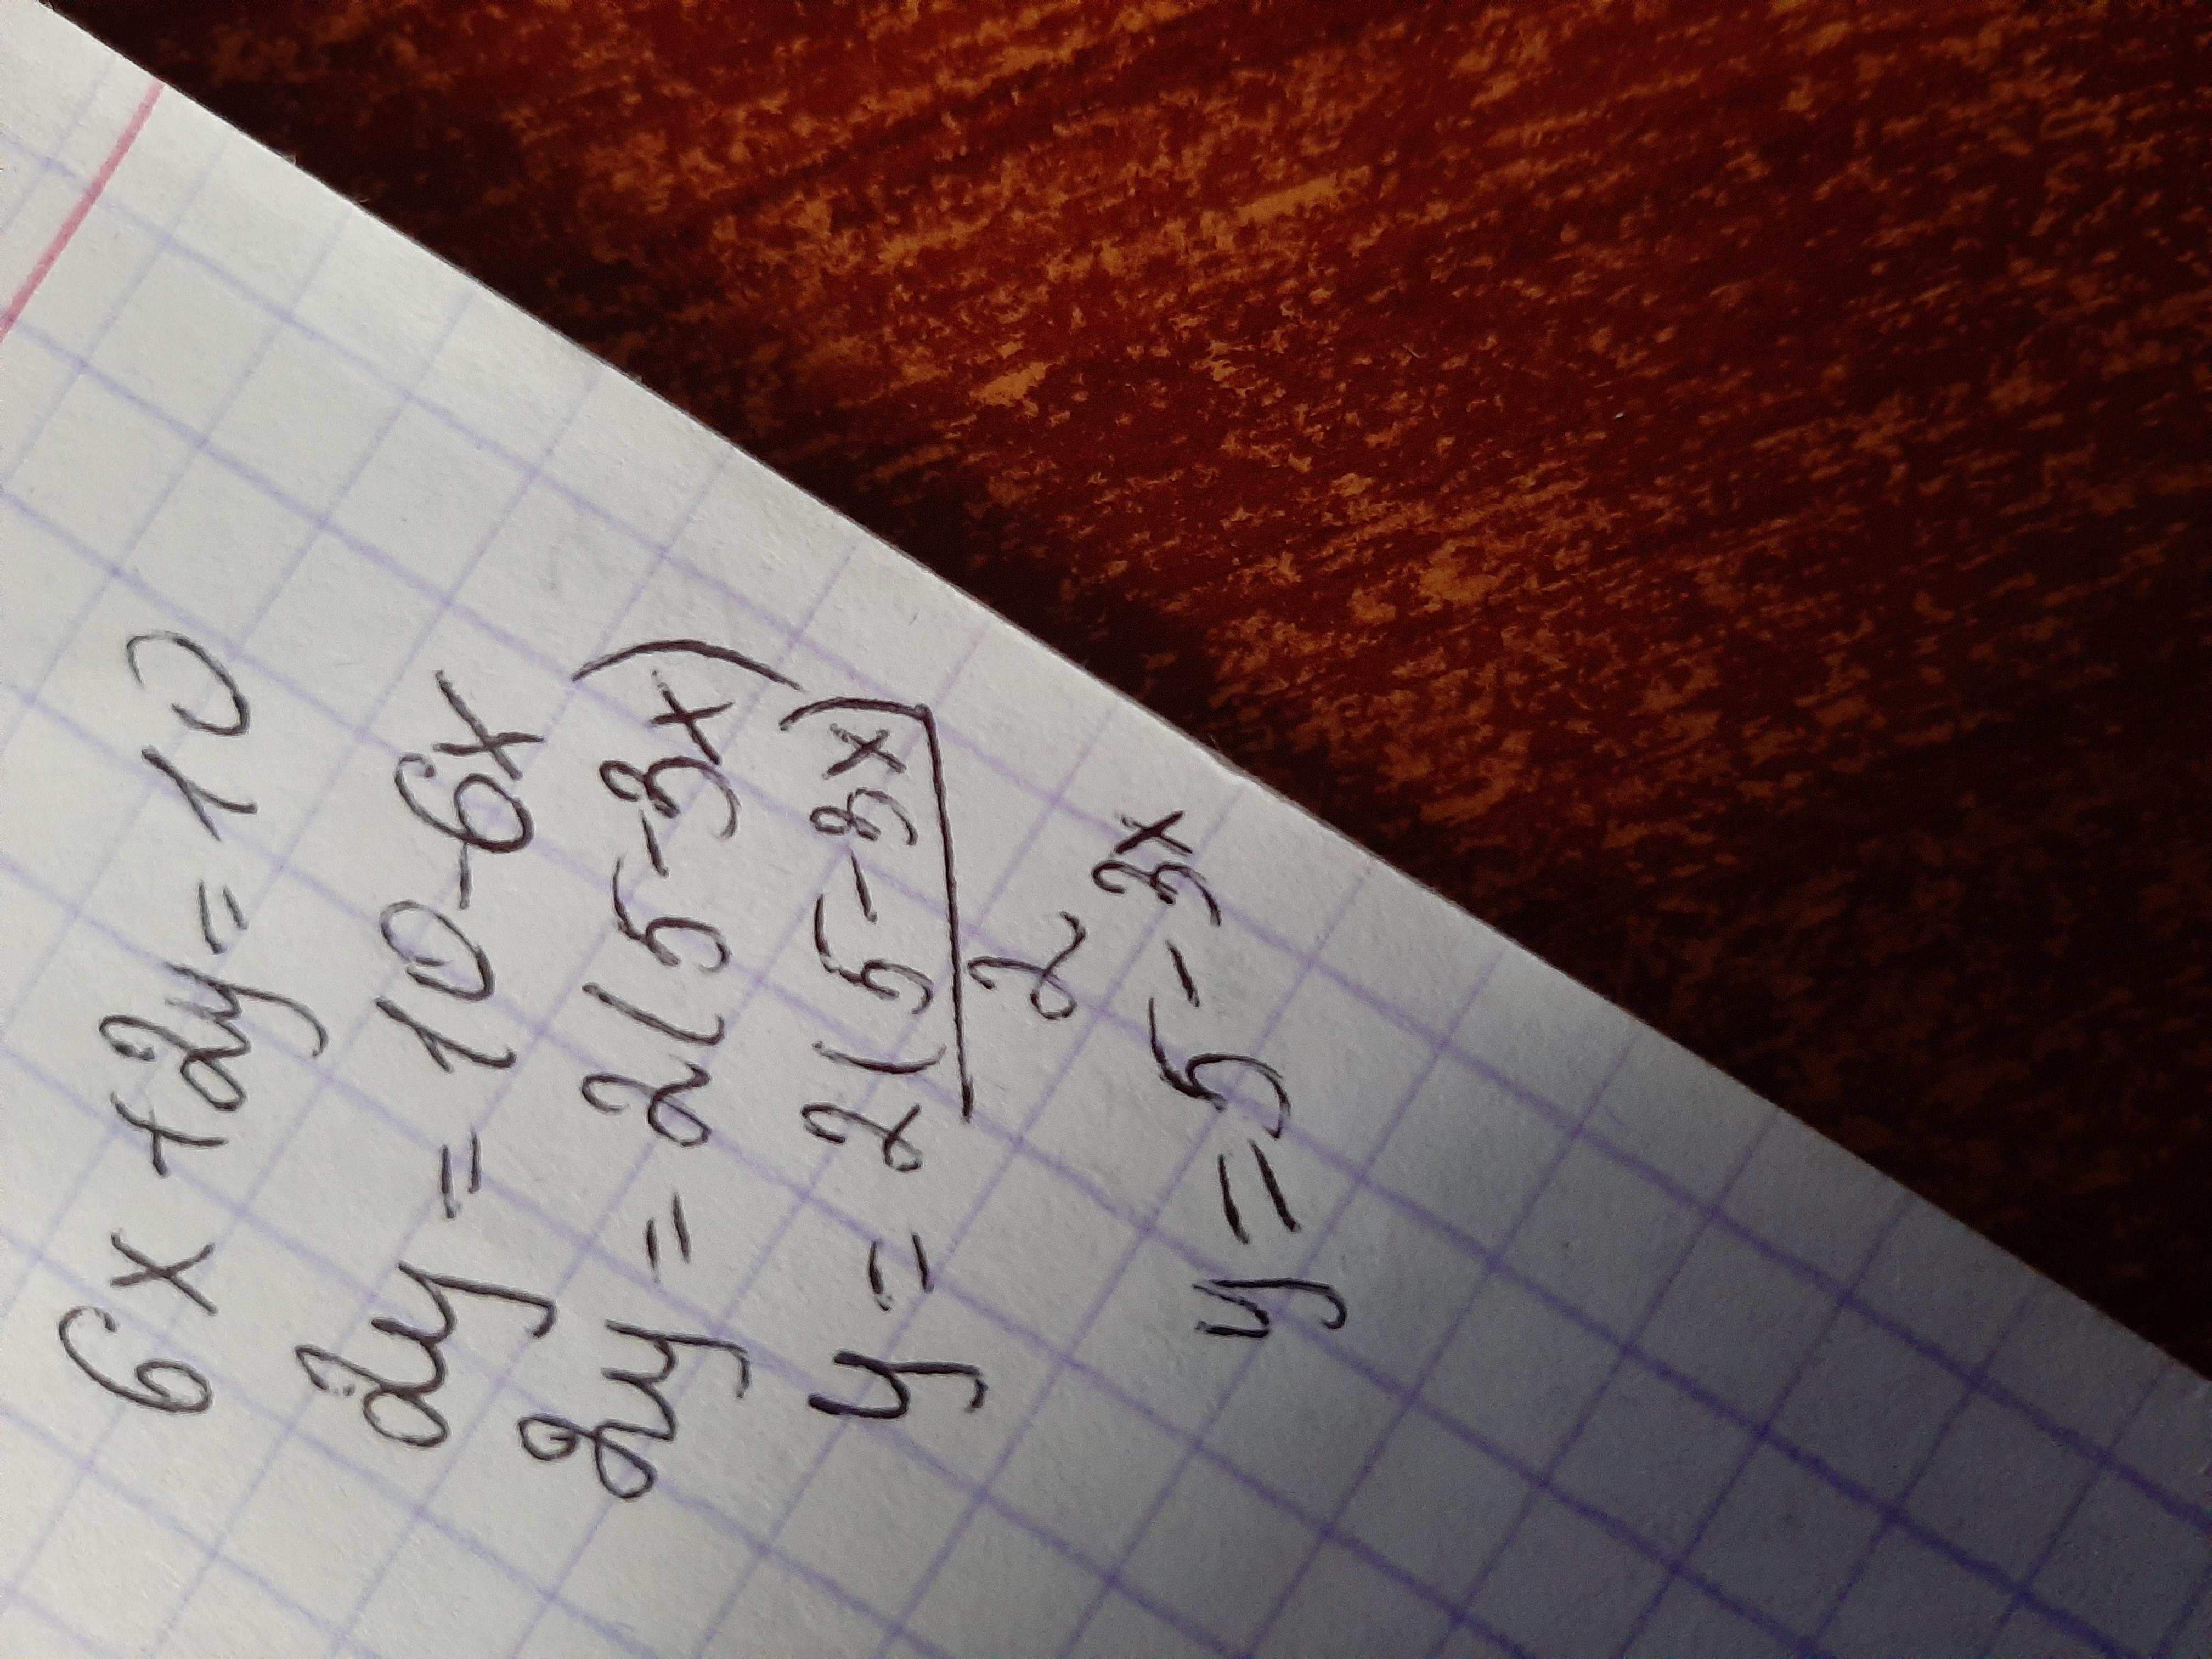 6x + 2y = 10
2y = 10 - 6x
2y = 2(5 - 3x)
y = 2(5 - 3x)
2
y = 5 - 3x